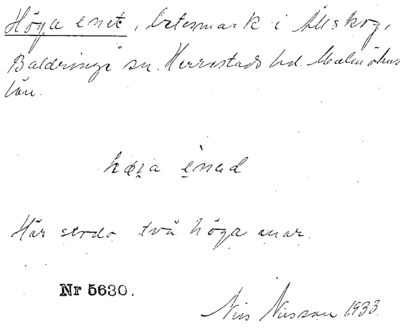 Höga enet, betesmark i Allskog,
Baldringe sn. Herrestads hd. Malmöhus
län.
høga enad
Här stodo två höga enar.
Nr 5630.
Nils Nilsson 1933.